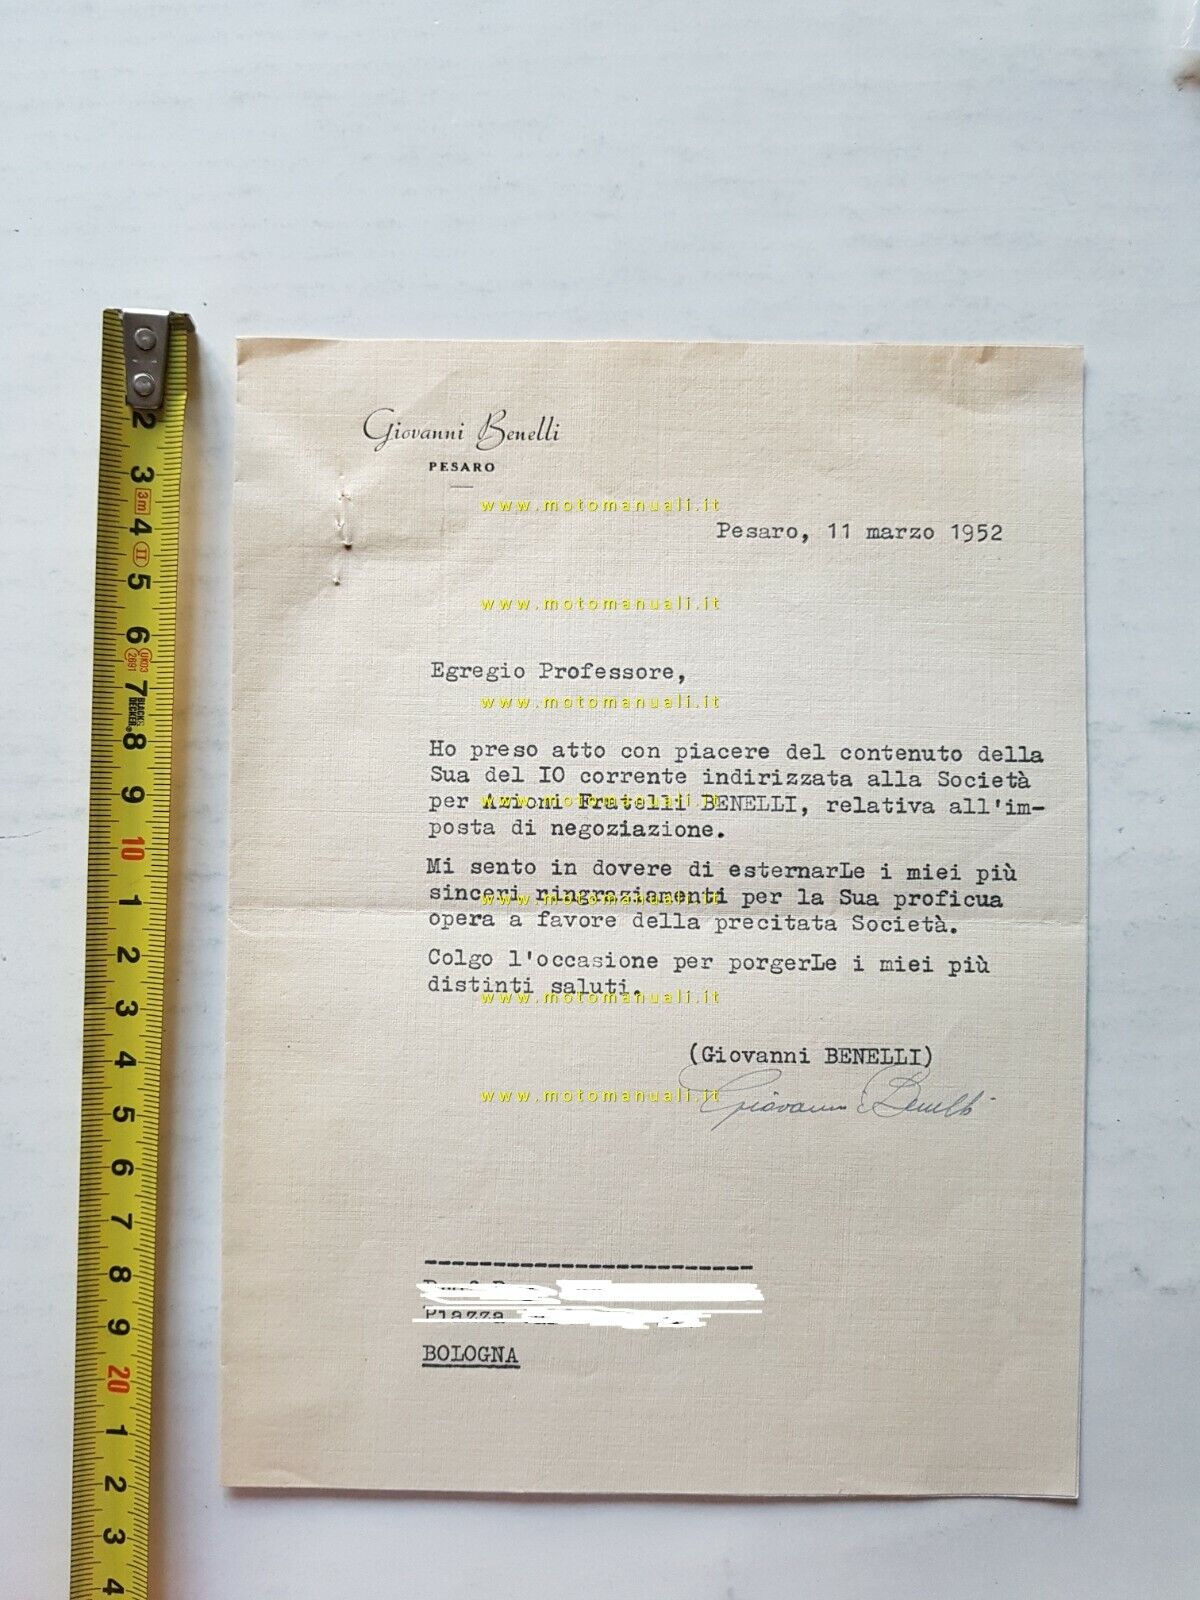 Giovanni Benelli
PESARO
www.motomanuali.it
Pesaro, 11 marzo 1952
www.motomanuali.it
Egregio Professore,
www.motomanuali.it
Ho preso atto con piacere del contenuto della
Sua del IO corrente indirizzata alla Società
per Azioni Fratelli BENELLI, relativa all'im-
www.motomanuali.it
posta di negoziazione.
Mi sento in dovere di esternarLe i miei più
sinceri ringraziamenti per la Sua proficua
www.motomanuali.it
opera a favore della precitata Società.
Colgo l'occasione per porgerLe i miei più
distinti saluti.
www.motomanuali.it
(Giovanni BENELLI)
www.motomanuali.it
Giovanni Benelli
Piazza
BOLOGNA
2
3
3m
4
II
5
6
UK03
2691
7
BLACK&
DECKER®
8
9
10
1
2
3
4
5
6
7
8
9
20
1
2
3
4